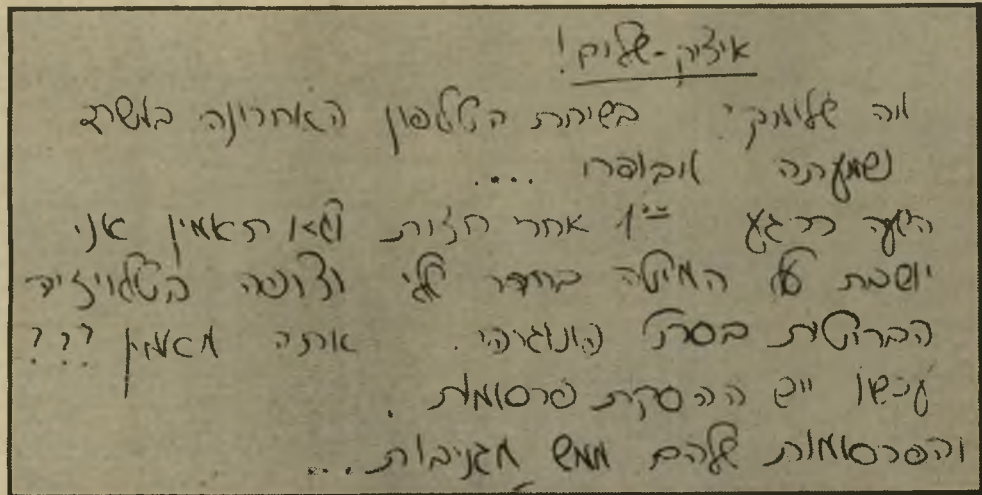 איציק - שלום!
מה שלומך? בשיחת הטלפון האחרונה באמת
נשמעתה מבופרו ....
השעה כרגע אחר חצות ולא תאמין אני
יושבת על המיטה בחדר שלי וצופה בטלויזיה
הבריטית בסרט הונגרי. אתה מאמין ???
עכשו יש הפסקת פרסומות.
והפרסומות שלהם ממש מגניבות...